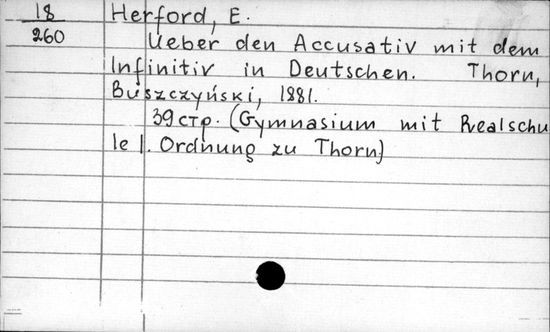 18
260
Herford, E.
Ueber den Accusativ mit dem
Infinitiv in Deutschen. Thorn,
Buszczyński, 1881.
39 стр. (Gymnasium mit Realschu
le I. Ordnung zu Thorn)